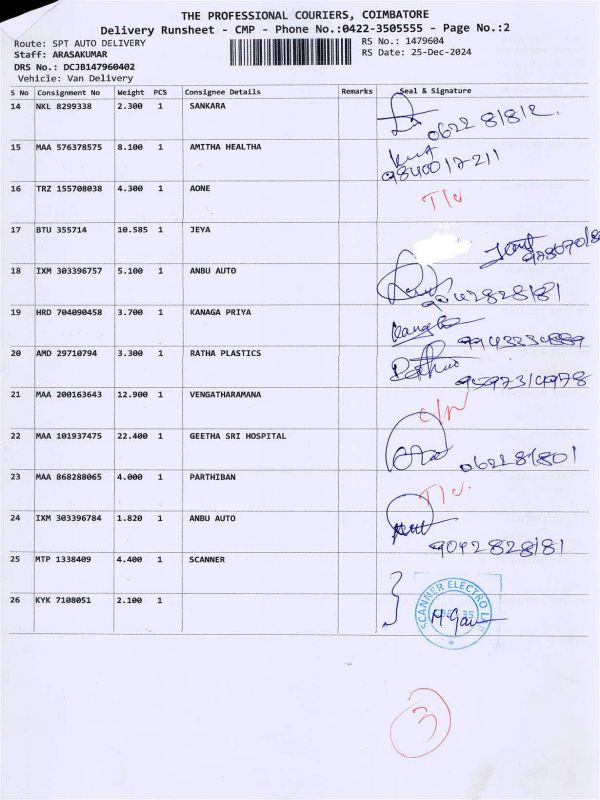 THE PROFESSIONAL COURIERS, COIMBATORE
Delivery Runsheet - CMP - Phone No.:0422-3505555 - Page No.:2
Route: SPT AUTO DELIVERY
RS No.: 1479604
Staff: ARASAKUMAR
RS Date: 25-Dec-2024
DRS No.: DCJB147960402
Vehicle: Van Delivery
S No Consignment No Weight PCS Consignee Details Remarks Seal & Signature
14 NKL 8299338 2.300 1 SANKARA
0622 81812.
15 MAA 576378575 8.100 1 AMITHA HEALTHA
9840017211
16 TRZ 155708038 4.300 1 AONE
17 BTU 355714 10.585 1 JEYA
18 IXM 303396757 5.100 1 ANBU AUTO
9042828181
19 HRD 704090458 3.700 1 KANAGA PRIYA
20 AMD 29710794 3.300 1 RATHA PLASTICS
21 MAA 200163643 12.900 1 VENGATHARAMANA
22 MAA 101937475 22.400 1 GEETHA SRI HOSPITAL
23 MAA 868288065 4.000 1 PARTHIBAN
24 IXM 303396784 1.820 1 ANBU AUTO
9042828181
25 MTP 1338409 4.400 1 SCANNER
26 KYK 7108051 2.100 1
SCANNER ELECTRO
3